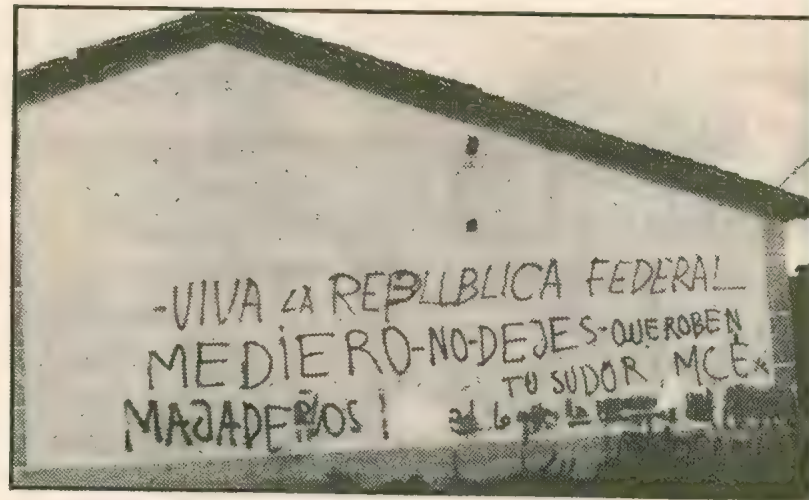 -VIVA LA REPUBLICA FEDERAL
MEDIERO-NO-DEJES-QUE ROBEN
TU SUDOR. MCE
MAJADEROS!